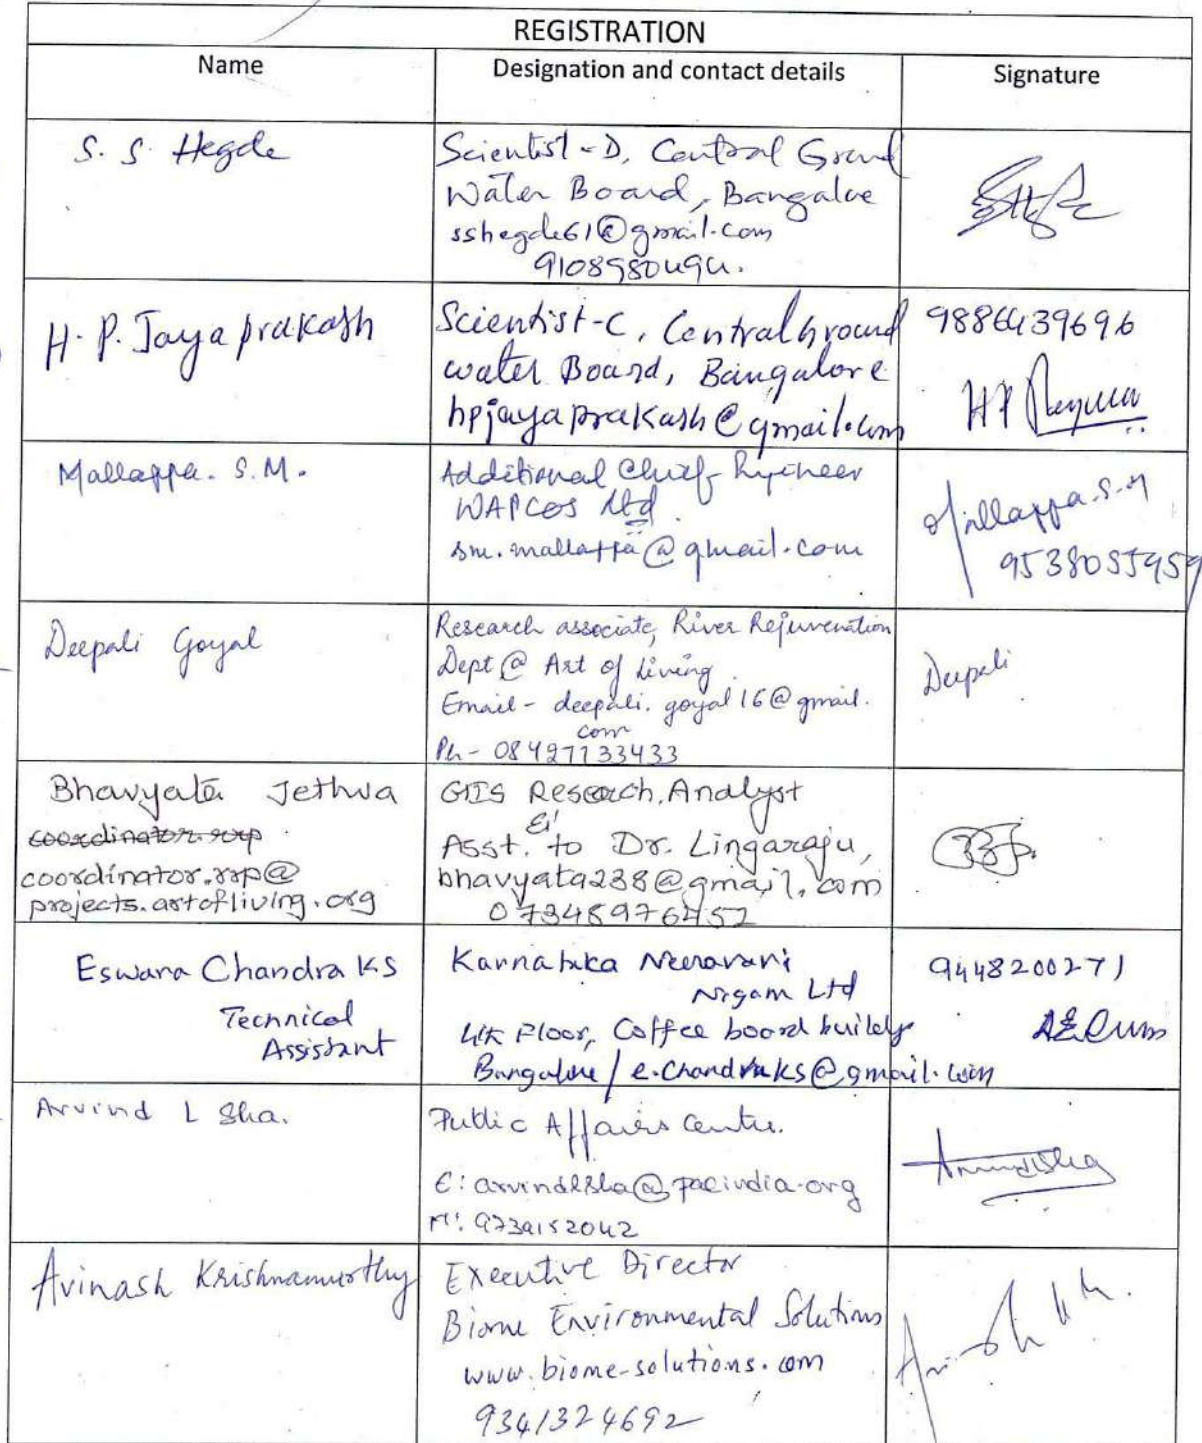 REGISTRATION
Name
Designation and contact details
Signature
S. S. Hegde
Scientist-D, Central Ground
Water Board, Bangalore
sshegde61@gmail.com
H. P. Jayaprakash
Scientist-C, Central Ground
water Board, Bangalore
hpjayaprakash@gmail.com
9886439696
Mallappa. S.M.
Additional Chief Engineer
WAPCOS Ltd
sm.mallappa@gmail.com
Mallappa.S.M
9538055959
Deepali Goyal
Research associate, River Rejuvenation
Dept @ Art of Living
Email - deepali.goyal16@gmail.
com
Ph - 08427133433
Deepali
Bhavyata Jethva
coordinator.rrp
coordinator.rrp@
projects.artofliving.org
GIS Research Analyst
&
Asst. to Dr. Lingaraju,
bhavyata238@gmail.com
07348976452
Eswara Chandra KS
Technical
Assistant
Karnataka Neeravari
Nigam Ltd
4th Floor, Coffee board building
Bangalore / e.chandraks@gmail.com
9448200271
Arvind L Sha.
Public Affairs Centre.
E: arvindlsha@pacindia.org
M: 9739152042
Avinash Krishnamurthy
Executive Director
Biome Environmental Solutions
www.biome-solutions.com
9341324692